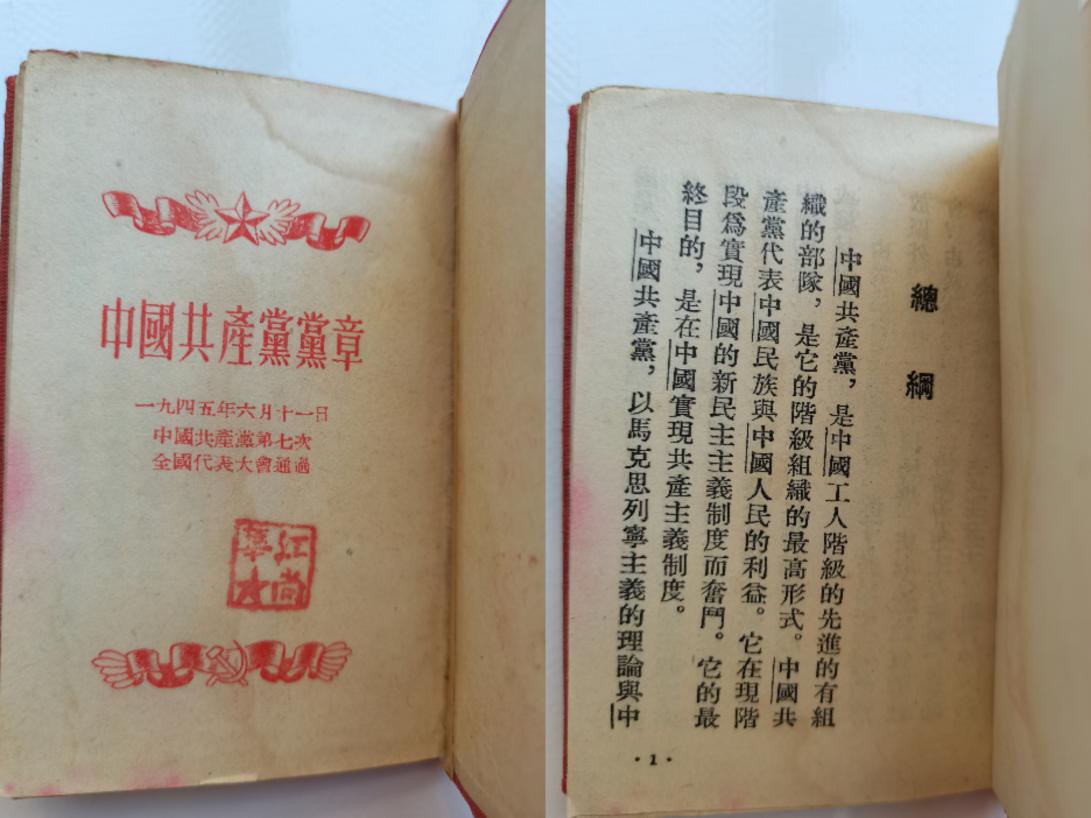 中國共產黨黨章
一九四五年六月十一日
中國共產黨第七次
全國代表大會通過
江尚
總綱
中國共產黨，是中國工人階級的先進的有組
織的部隊，是它的階級組織的最高形式。中國共
產黨代表中國民族與中國人民的利益。它在現階
段爲實現中國的新民主主義制度而奮鬥。它的最
終目的，是在中國實現共產主義制度。
中國共產黨，以馬克思列寧主義的理論與中
·1·